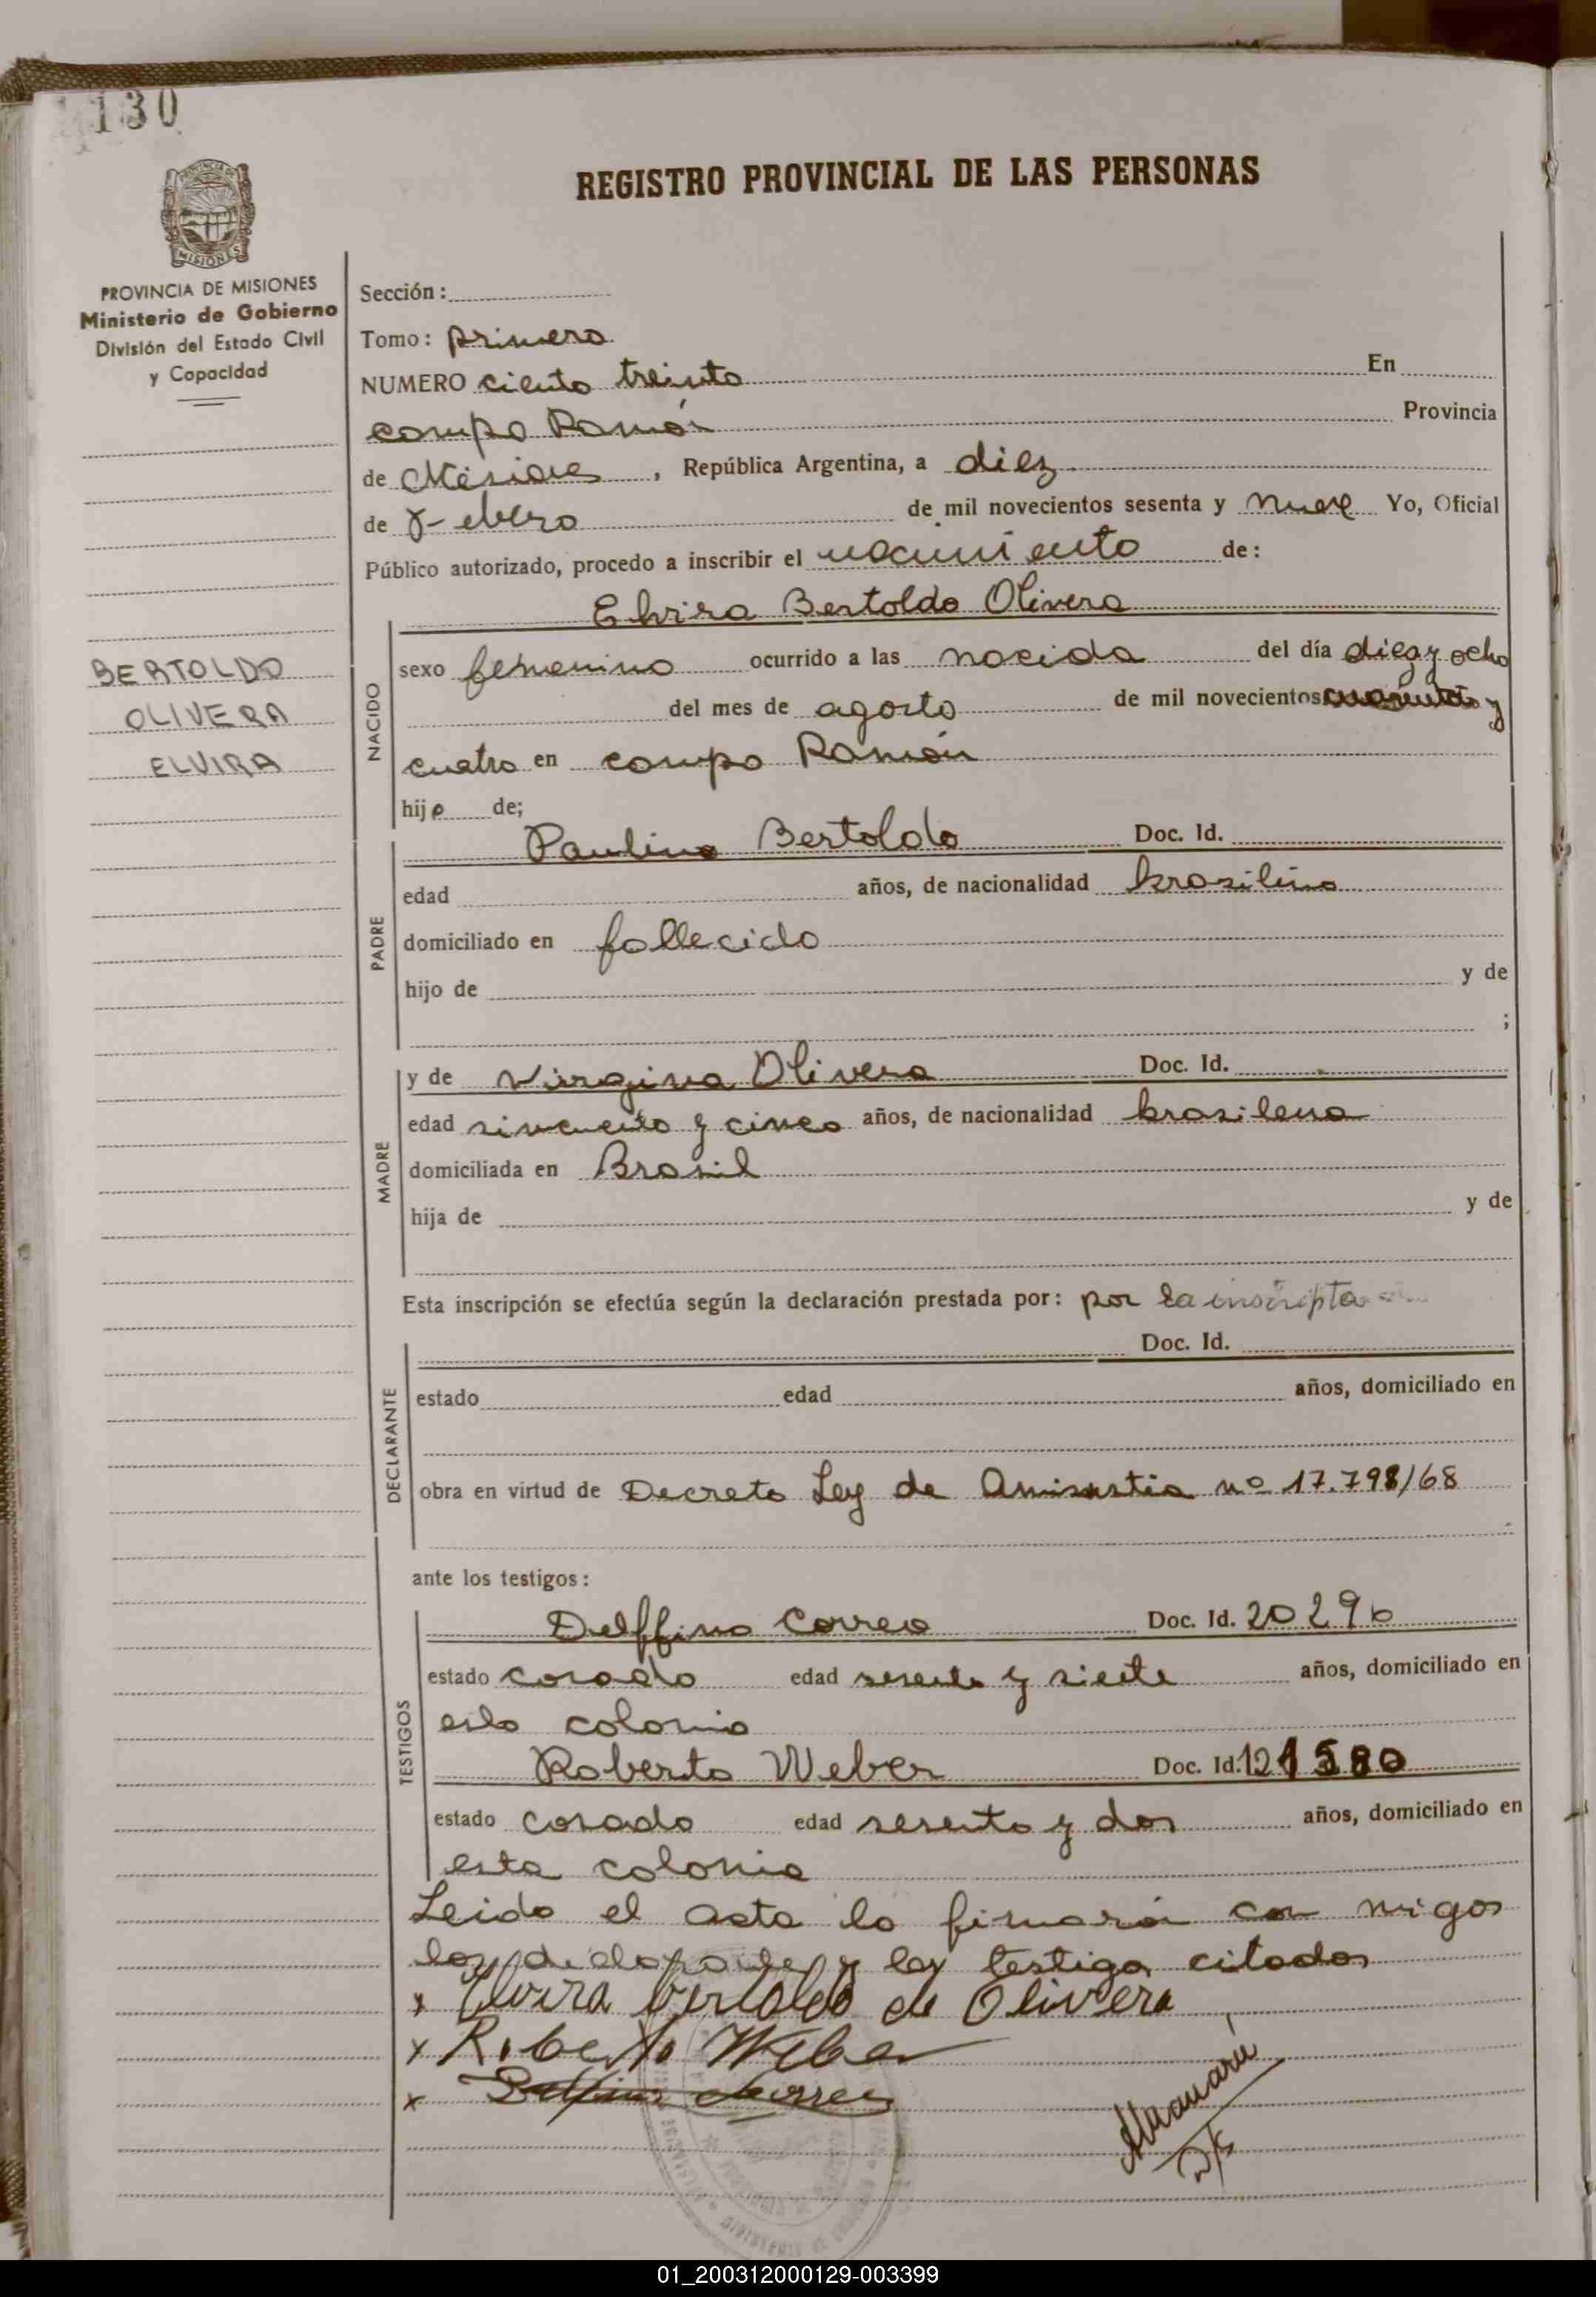 130
REGISTRO PROVINCIAL DE LAS PERSONAS
PROVINCIA DE
MISIONES
PROVINCIA DE MISIONES
Ministerio de Gobierno
División del Estado Civil
y Capacidad
Sección:
Tomo: primero
NUMERO ciento treinta En
campo Ramón Provincia
de Misiones, República Argentina, a diez
de Febrero de mil novecientos sesenta y nueve Yo, Oficial
Público autorizado, procedo a inscribir el nacimiento de:
Elvira Bertoldo Olivera
BERTOLDO
OLIVERA
ELVIRA
NACIDO
sexo femenino ocurrido a las nacida del día diez y ocho
del mes de agosto de mil novecientos cuarenta y
cuatro en campo Ramón
hija de;
PADRE
Paulino Bertoldo Doc. Id.
edad años, de nacionalidad brasilino
domiciliado en fallecido
hijo de y de
;
MADRE
y de Virgina Olivera Doc. Id.
edad sincuenta y cinco años, de nacionalidad brasilena
domiciliada en Brasil
hija de y de
Esta inscripción se efectúa según la declaración prestada por: por la inscripta
DECLARANTE
Doc. Id.
estado edad años, domiciliado en
obra en virtud de Decreto Ley de Amisnstia nº 17.798/68
ante los testigos:
TESTIGOS
Delffino Correa Doc. Id. 20296
estado casado edad sesenta y siete años, domiciliado en
esta colonia
Roberto Weber Doc. Id. 121580
estado casado edad sesenta y dos años, domiciliado en
esta colonia
Leida el acta la firmará con migos
los y los testigos citados
x Elvira Bertoldo de Olivera
x Roberto Weber
x Delfino Correa
01_200312000129-003399